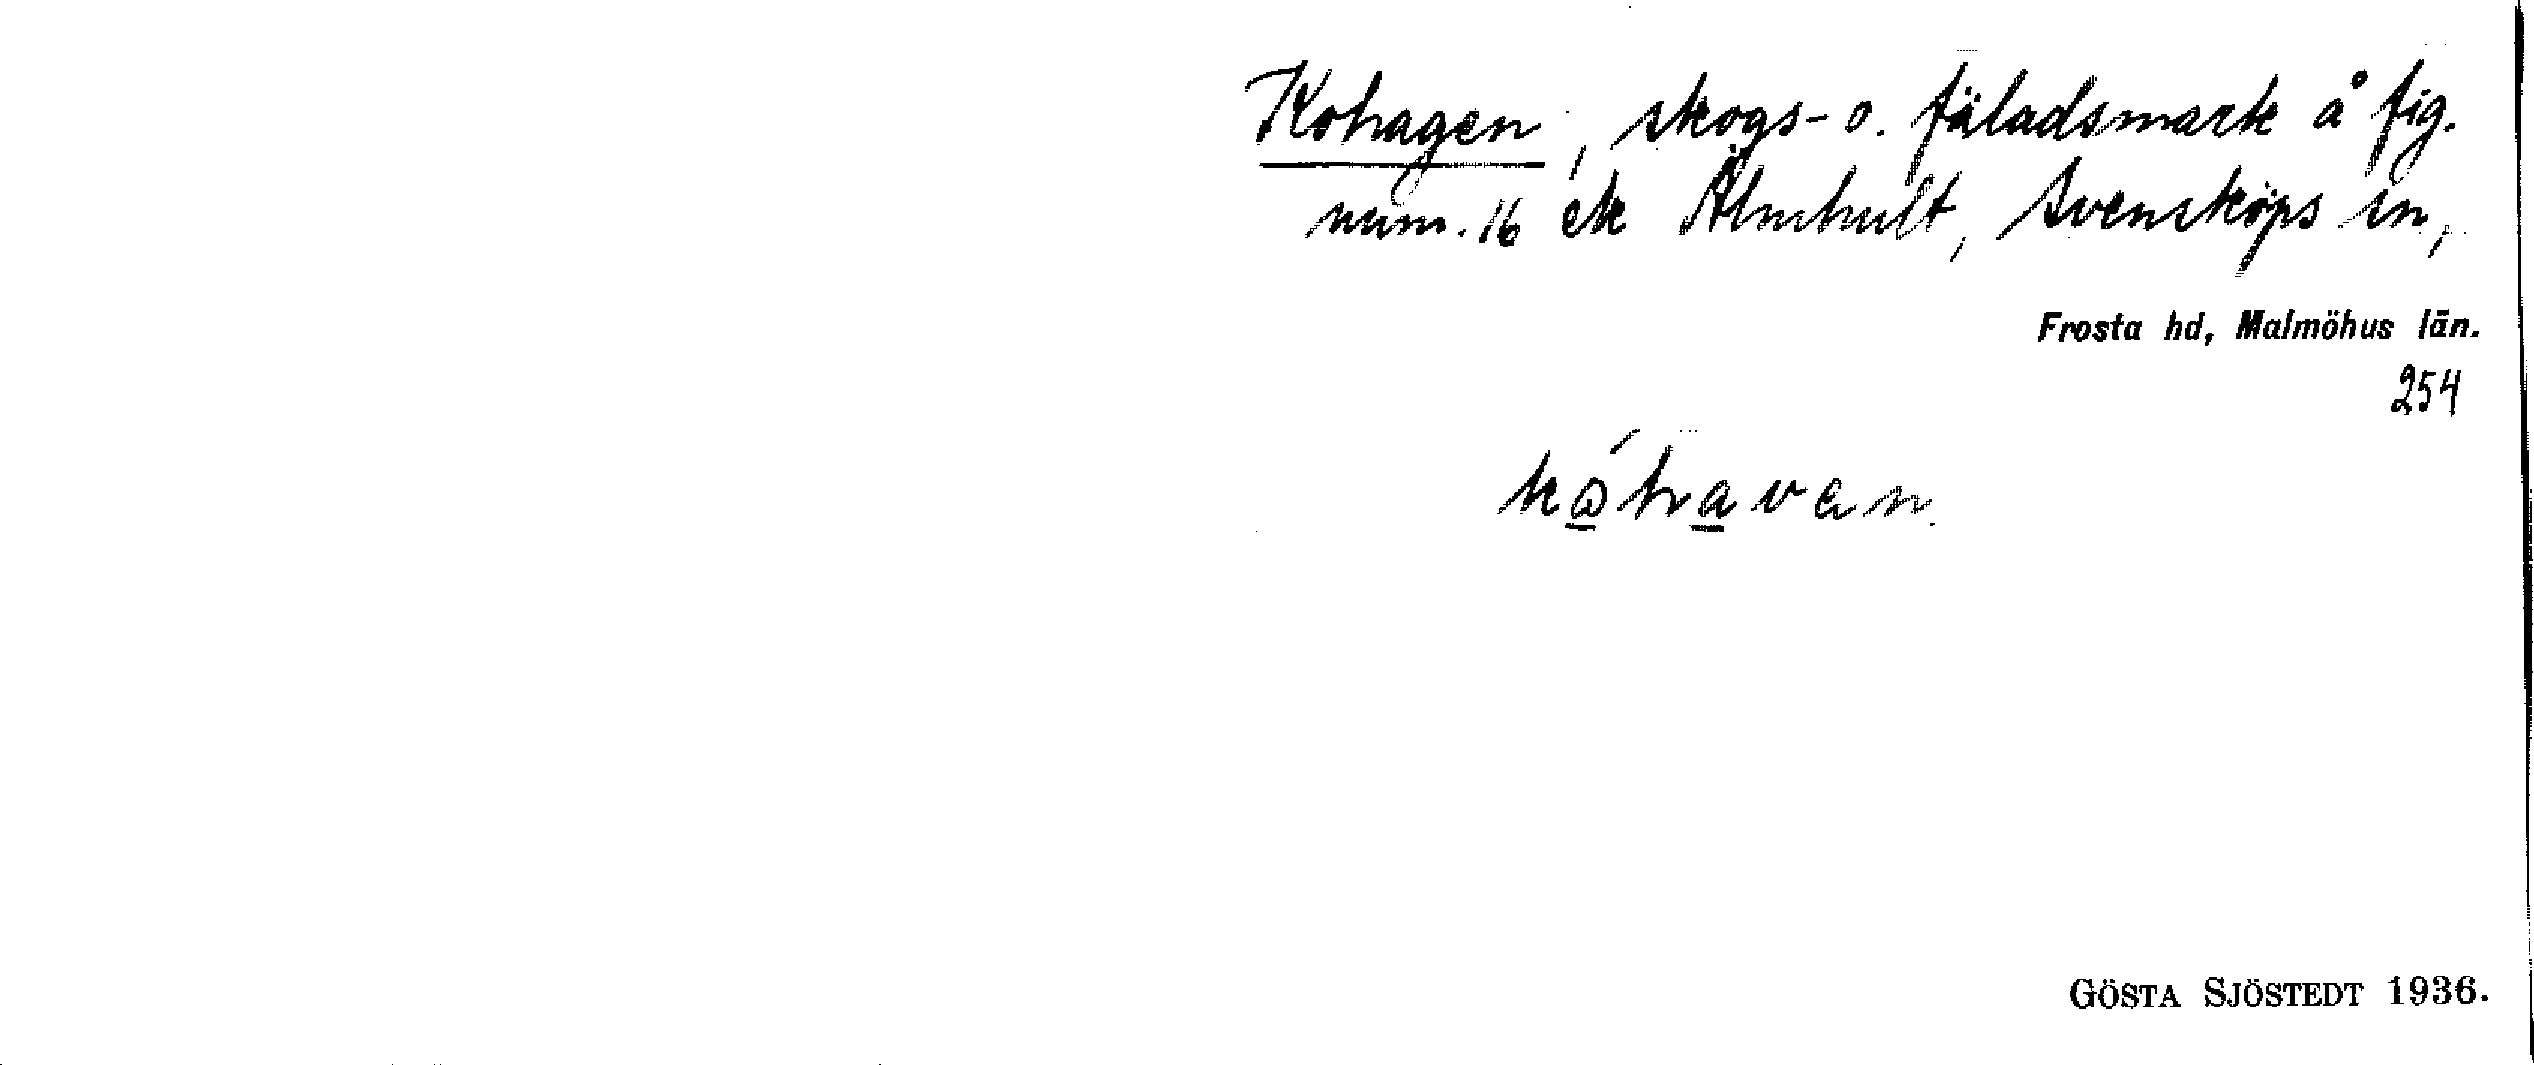 Kohagen, skogs- o. fäladsmark å fig.
num. 16 ek Älmhult, Svensköps sn,
Frosta hd, Malmöhus län.
254
GÖSTA SJÖSTEDT 1936.